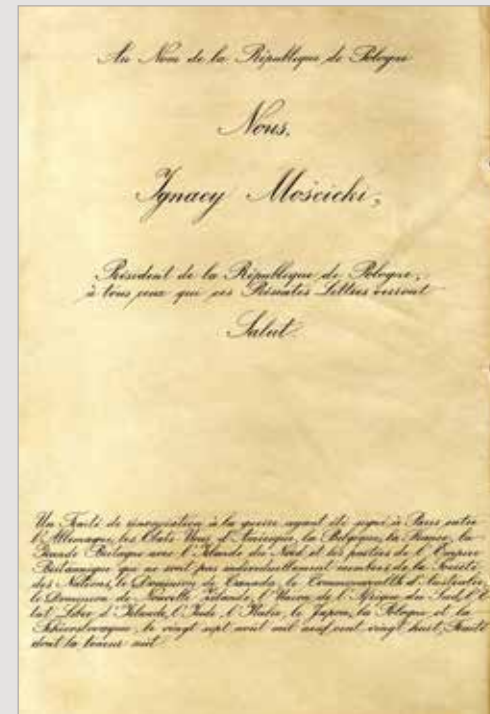 Au Nom de la République de Pologne
Nous,
Ignacy Mościcki,
Président de la République de Pologne,
à tous ceux qui ces Présentes Lettres verront
Salut.
Un Traité de renonciation à la guerre ayant été signé à Paris entre
l'Allemagne, les Etats Unis d'Amérique, la Belgique, la France, la
Grande Bretagne avec l'Irlande du Nord et les parties de l'Empire
Britannique qui ne sont pas individuellement membres de la Société
des Nations, le Dominion du Canada, le Commonwealth d'Australie,
le Dominion de Nouvelle Zélande, l'Union de l'Afrique du Sud, l'E
tat Libre d'Irlande, l'Inde, l'Italie, le Japon, la Pologne et la
Tchécoslovaquie, le vingt sept août mil neuf cent vingt huit, Traité
dont la teneur suit